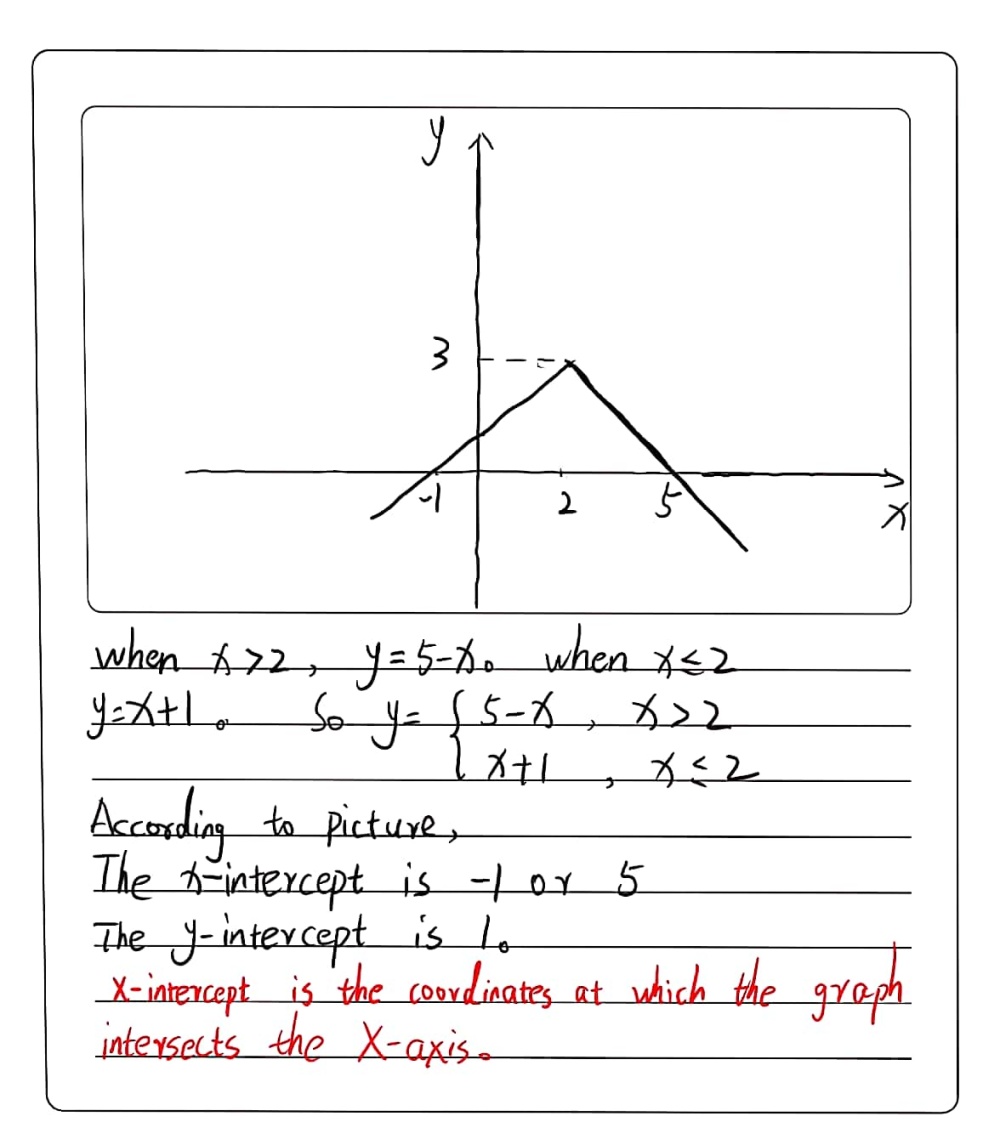 y
3
-1 2 5
x
when x>2, y=5-x。 when x≤2
y=x+1。 So y= { 5-x , x>2
x+1 , x≤2
According to picture,
The x-intercept is -1 or 5
The y-intercept is 1。
X-intercept is the coordinates at which the graph
intersects the X-axis。